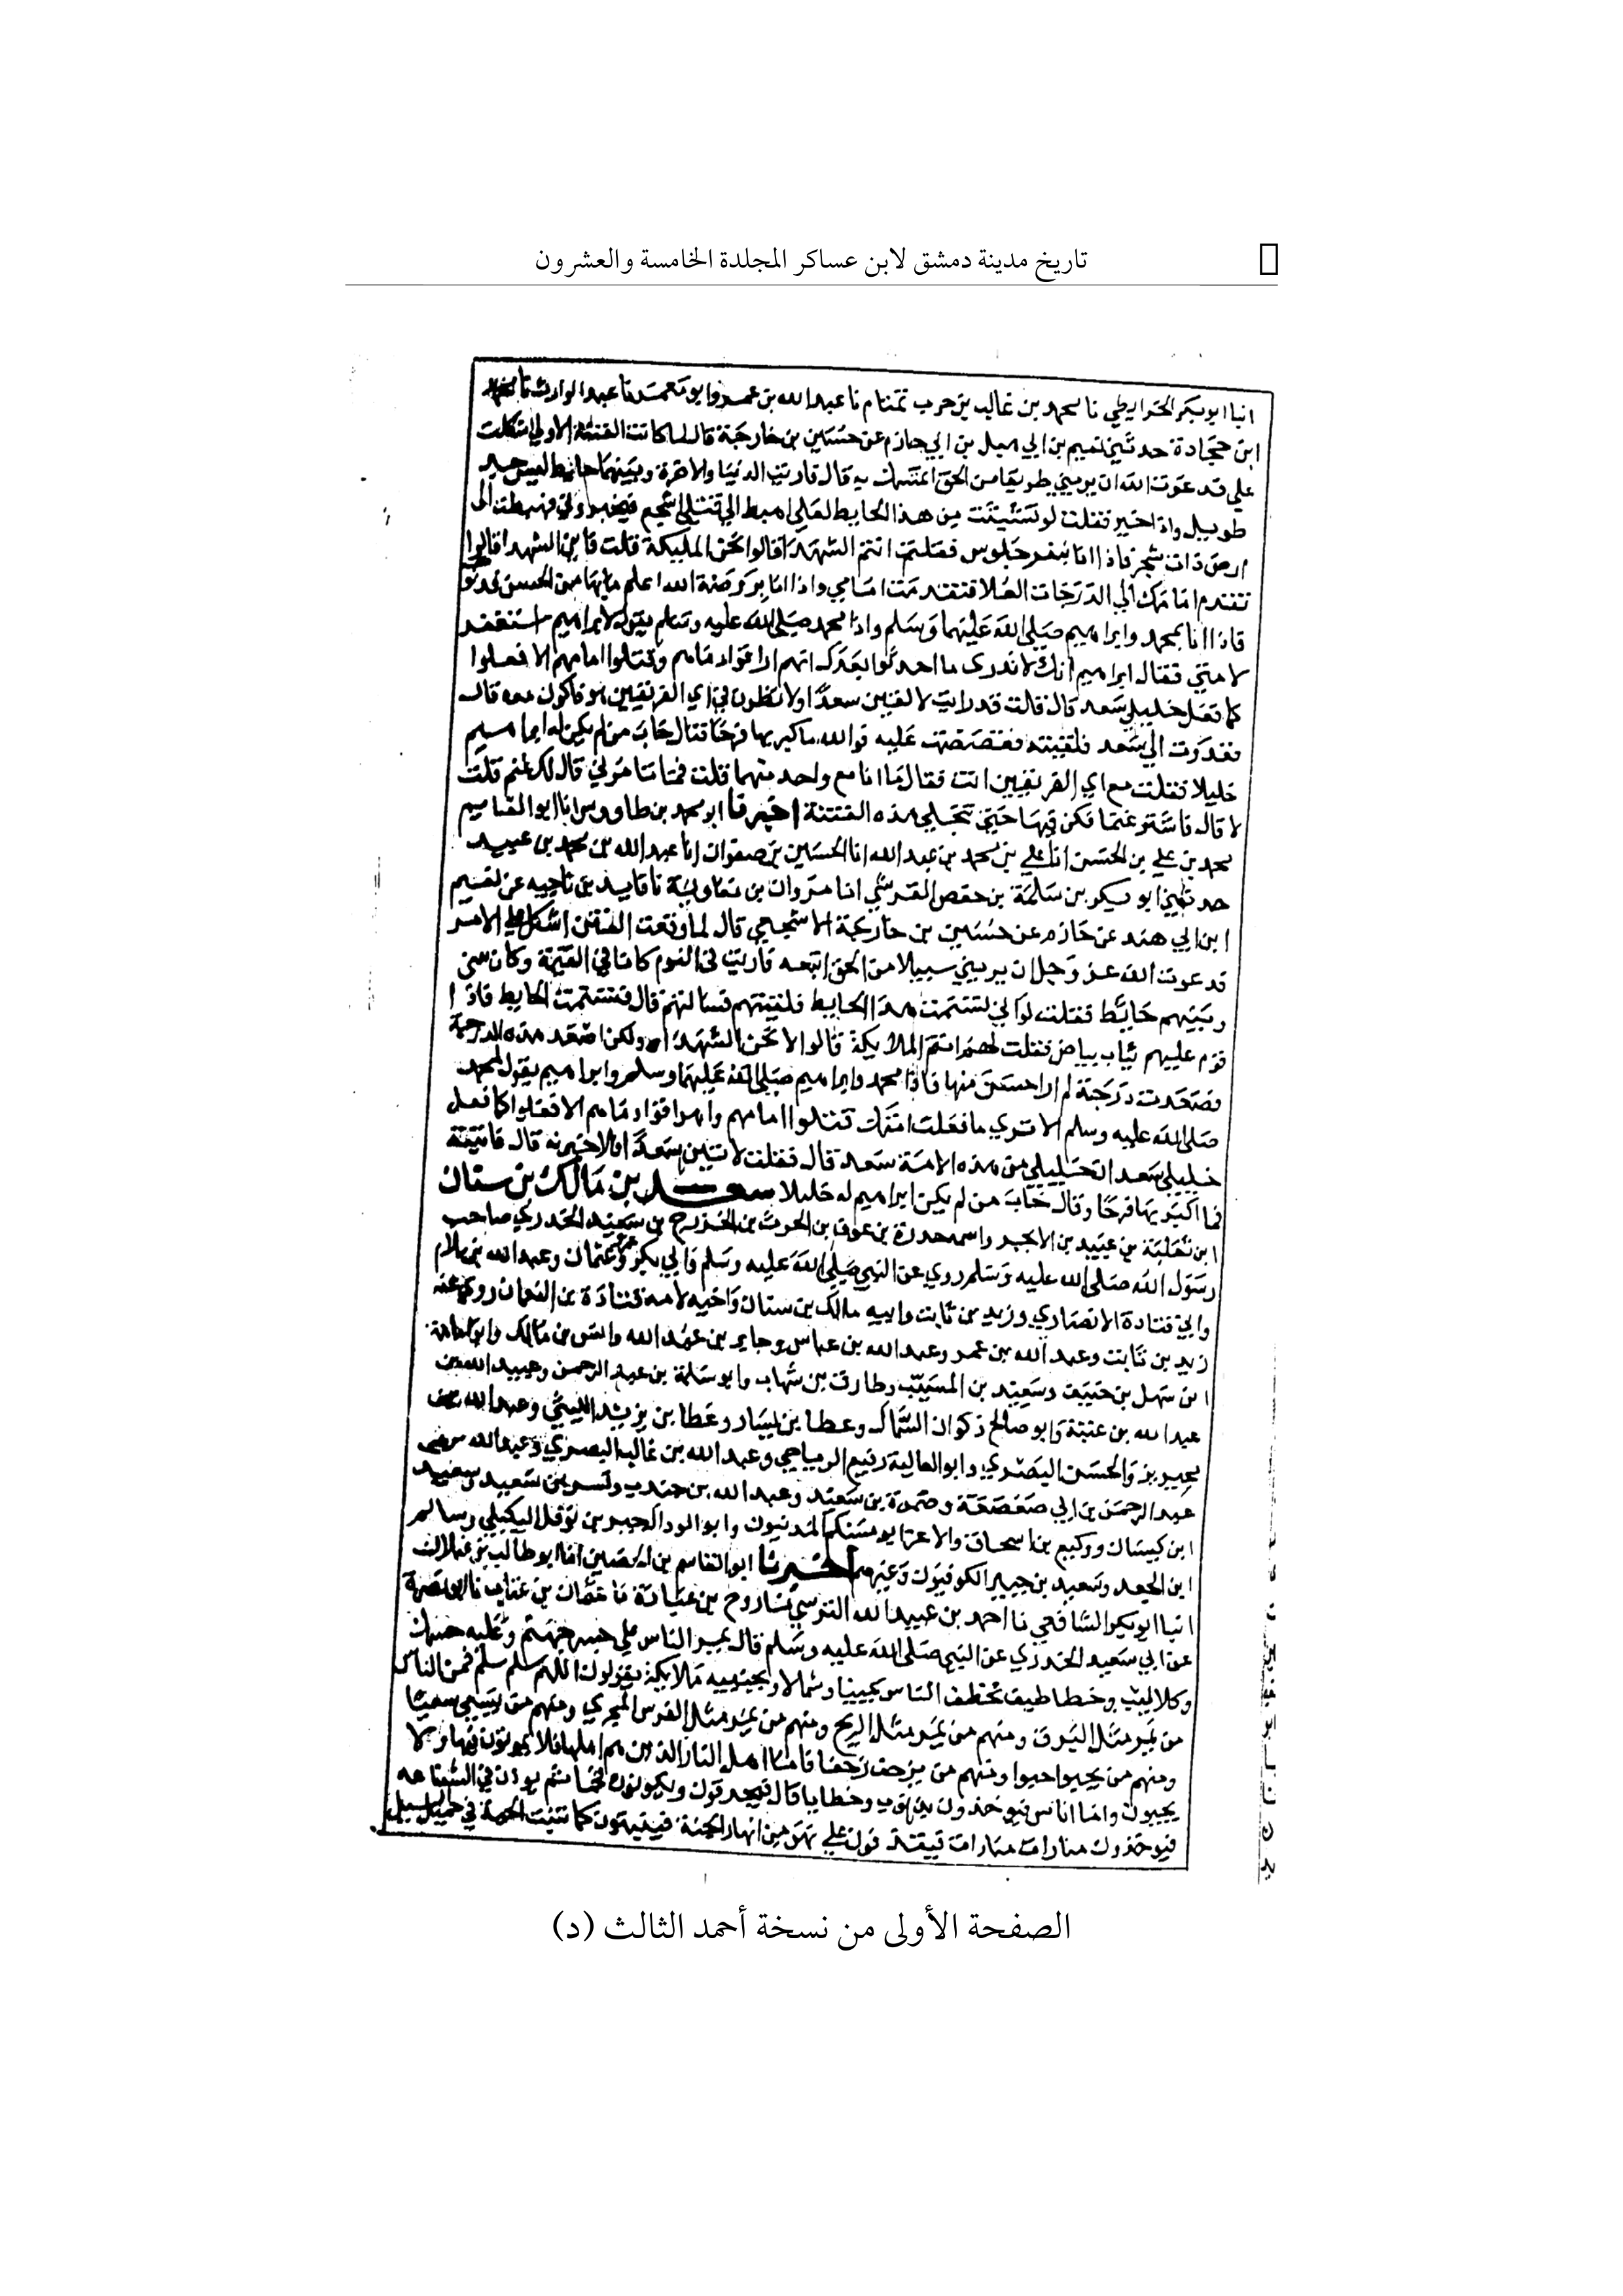 تاريخ مدينة دمشق لابن عساكر المجلدة الخامسة والعشرون
انبا ابو بكر الخرايطي نا محمد بن غالب بن حرب تمتام نا عبد الله بن عمرو ابو معمر نا عبد الوارث نا محمد
ابن حجادة حدثني نعيم بن ابي عن ابي حازم عن حسين بن خارجة قال لما كانت الفتنة الاولي اشكلت
علي فدعوت الله ان يريني طريقا من الحق اتمسك به قال فاريت الدنيا والاخرة وبينهما حايط ليس جد
طويل واذا فقلت لو تسننت من هذا الحايط لعلي اهبط الي قتلي اشجع فيخبروني فهبطت الي
ارض ذات شجر فاذا انا بنفر جلوس فقلت انتم الشهدا قالوا نحن المليكة قلت فاين الشهدا قالوا
تقدم امامك الي الدرجات العلا فتقدمت امامي واذا انا بروضة الله اعلم مابها من الحسن
فاذا انا بمحمد وابراهيم صلي الله عليهما وسلم واذا محمد صلي الله عليه وسلم يقول لابراهيم استغفر
لامتي فقال ابراهيم انك لاتدري ما احدثوا بعدك انهم اراقوا دماهم وقتلوا امامهم الا فعلوا
كما فعل خليلي سعد قال قلت قد رايت لالقين سعدا ولانظرن في اي الفريقين هو فاكون معه قال
فغدوت الي سعد فلقيته فقصصت عليه فوالله ما اكبر بها فرحا فقال خاب من لم يكن له ابراهيم
خليلا فقلت مع اي الفريقين انت فقال ما انا مع واحد منهما قلت فما تامرني قال لك غنم قلت
لا قال فاشتر غنما فكن فيها حتي تنجلي هذه الفتنة اخبرنا ابو محمد بن طاووس انا ابو القاسم
محمد بن علي بن الحسن انا علي بن محمد بن عبد الله انا الحسين بن صفوان انا عبد الله بن محمد بن عبيد
حدثني ابو بكر بن سلمة بن حفص القرشي انا مروان بن معاوية نا بن ناجيه عن نعيم
ابن ابي هند عن حازم عن حسين بن خارجة الاشجعي قال لما وقعت الفتن اشكل علي الامر
فدعوت الله عز وجل ان يريني سبيلا من الحق اتبعه فاريت في النوم كانا في القيمة وكان بيني
وبينهم حايط فقلت لو اني تسنمت هذا الحايط فلقيتهم فسالتهم قال فتسنمت الحايط فاذا
قوم عليهم ثياب بياض فقلت لهم انتم الملايكة قالوا لا نحن الشهدا ولكن اصعد هذه الدرجة
فصعدت درجة لم ار احسن منها فاذا محمد وابراهيم صلي الله عليهما وسلم وابراهيم يقول لمحمد
صلي الله عليه وسلم الا تري ما فعلت امتك قتلوا امامهم واهراقوا دماهم الا فعلوا كما فعل
خليلي سعد ان خليلي من هذه الامة سعد قال فقلت لاتين سعدا فلاخبرنه قال فاتيته
فما اكبر بها فرحا وقال خاب من لم يكن ابراهيم له خليلا سعد بن مالك بن سنان
ابن ثعلبة بن عبيد بن الابجر واسمه خدرة بن عوف بن الحرث بن الخزرج بن سعيد الخدري صاحب
رسول الله صلي الله عليه وسلم روي عن النبي صلي الله عليه وسلم وابي بكر وعمر وعثمان وعبد الله بن سلام
وابي قتادة الانصاري وزيد بن ثابت وابيه مالك بن سنان واخيه لامه قتادة بن النعمان روي عنه
زيد بن ثابت وعبد الله بن عمر وعبد الله بن عباس وجابر بن عبد الله وانس بن مالك وابو امامة
ابن سهل بن حنيف وسعيد بن المسيب وطارق بن شهاب وابو سلمة بن عبد الرحمن وعبيد الله بن
عبد الله بن عتبة وابو صالح ذكوان السمان وعطا بن يسار وعطا بن يزيد الليثي وعبد الله بن
محيريز والحسن البصري وابو العالية رفيع الرياحي وعبد الله بن غالب البصري وعبد الله بن
عبد الرحمن بن ابي صعصعة وضمرة بن سعيد وعبد الله بن وبسر بن سعيد وسعيد
ابن كيسان ووكيع بن اسحاق والاغر ابو مسلم المدنيون وابو الوداك جبر بن نوفل البكيلي وسالم
ابن الجعد وسعيد بن جبير الكوفيون وغيرهم اخبرنا ابو القاسم بن الحصين انا ابو طالب بن غيلان
انبا ابو بكر الشافعي نا احمد بن عبيد الله النرسي نا روح بن عبادة نا عثمان بن غياث نا ابو نضرة
عن ابي سعيد الخدري عن النبي صلي الله عليه وسلم قال يمر الناس علي جسر جهنم وعليه حسك
وكلاليب وخطاطيف تخطف الناس يمينا وشمالا وبجنبيه ملايكة يقولون اللهم سلم سلم فمن الناس
من يمر مثل البرق ومنهم من يمر مثل الريح ومنهم من يمر مثل الفرس المجري ومنهم من يسعي سعيا
ومنهم من يحبوا حبوا ومنهم من يزحف زحفا فاما اهل النار الذين هم اهلها فلا يموتون فيها ولا
يحيون واما اناس فيوخذون بذنوب وخطايا قال فيحرقون ويكونون فحما ثم يوذن في الشفاعه
فيوخذون ضبارات ضبارات فيقذفون علي نهر من انهار الجنة فينبتون كما تنبت الحبة في حميل السيل
الصفحة الأولى من نسخة أحمد الثالث (د)